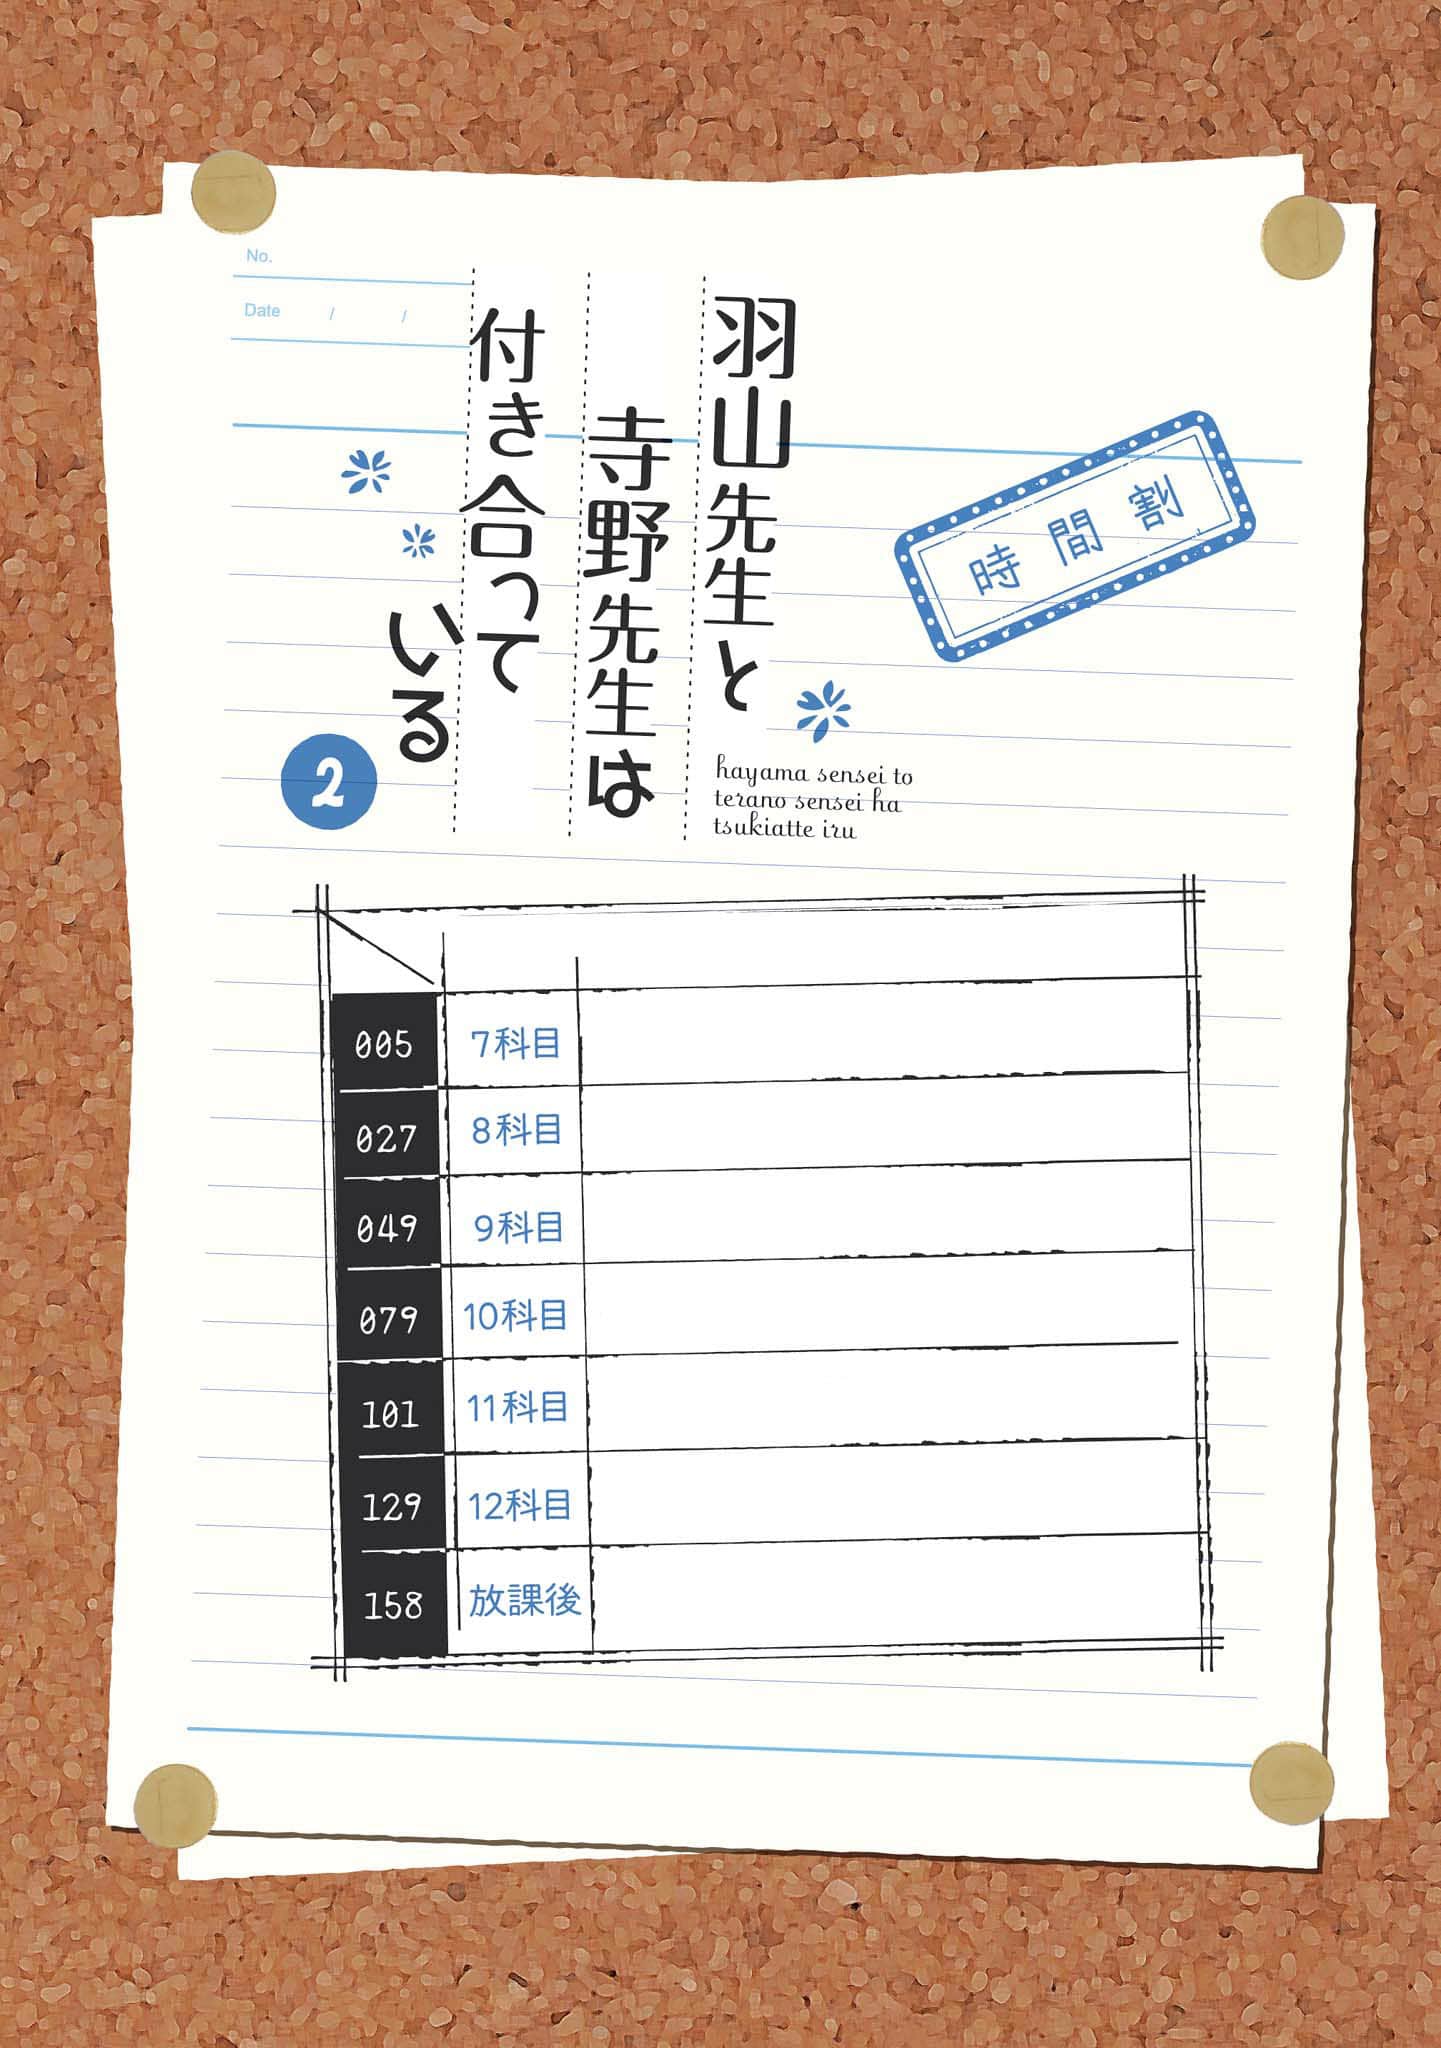 No.
Date / /
羽山先生と
寺野先生は
付き合って
いる
2
時間割
hayama sensei to
terano sensei ha
tsukiatte iru
005 7科目
027 8科目
049 9科目
079 10科目
101 11科目
129 12科目
158 放課後